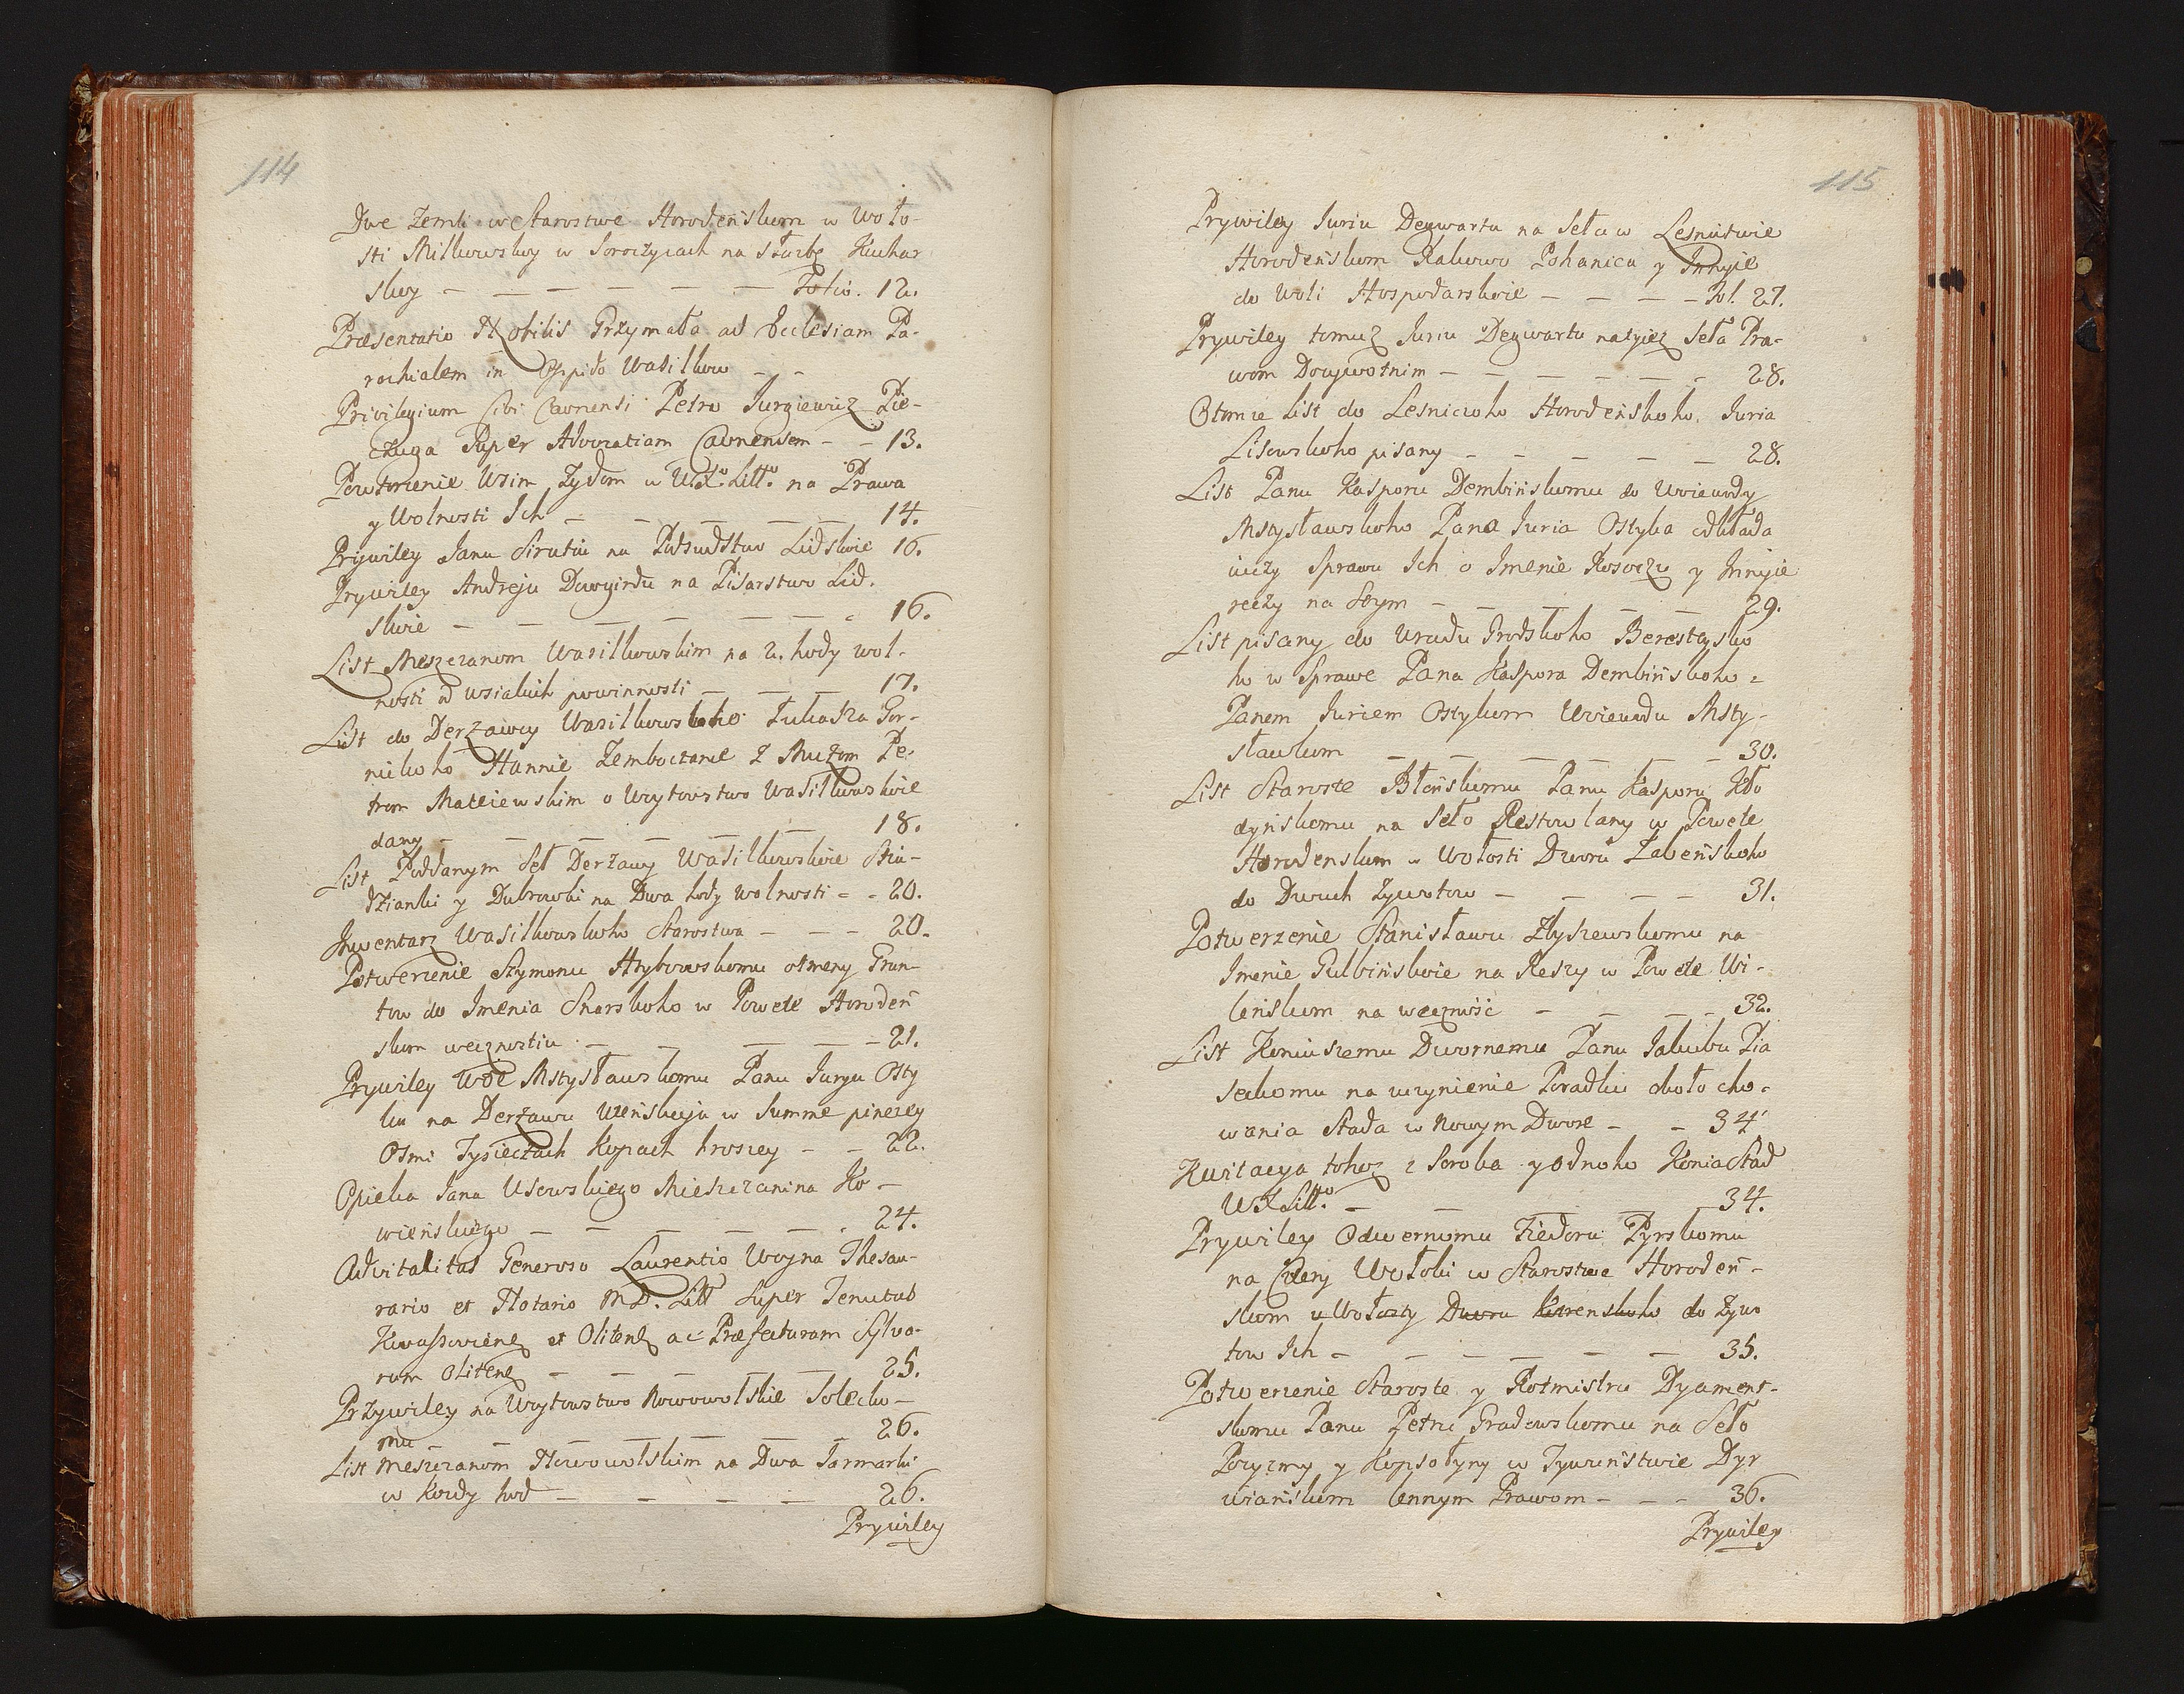 114
Dwe Zemli w Starostwe Horodenskom w Woło-
sti Milkowskoy w Soroczycach na służbę Kuchar
skoy — — — — — — — Folio. 12.
Præsentatio Nobilis Grzymała ad Ecclesiam Pa-
rochialem in Oppido Wasilkow — -
Privilegium Civi Caunensi Petro Jurgiewicz Pie-
czuga Super Advocatiam Caunensem - - 13.
Powtorienie Wsim Zydom w W.X.Litt. na Prawa
y Wolnosti Ich — — — — — 14.
Prywiley Janu Sirutiu na Podsudstwo Lidskoie 16.
Prywiley Andreju Dowgirdu na Pisarstwo Lid.
skoie — — — — — — — - 16.
List Meszczanom Wasilkowskim na 2. hody wol-
nosti od wsiakich powinnosti — — — 17.
List do Derzawcy Wasilkowskoho Łukasza Gor-
nickoho Hannie Zemboczanie z Mużom Pe-
trom Mateiewskim o Woytowstwo Wasilkowskoie
dany — — — — — — 18.
List Poddanym Seł Derżawy Wasilkowskoie Stu-
dzianki y Dubrowki na Dwa hody wolnosti - - 20.
Inwentarz Wasilkowskoho Starostwa — — - 20.
Potwerzenie Szymonu Hrybowskomu otmeny Grun-
tow do Imenia Snarskoho w Powete Horodeń
skom wecznostiu — — — — — 21.
Prywiley Woe Mstysławskomu Panu Juryu Osty
ku na Derżawu Uzeńskuju w Summe pinezey
Osmi Tysieczach kopach hroszey — — 22.
Opieka Jana Usowskiego Mieszczanina Ko-
wieńskiego — — — — — — . 24.
Advitalitas Generoso Laurentio Woyna Thesau-
rario et Notario M.D. Litt Super Tenutas
et Olitenę ac Præfecturam Sylva-
rum Olitenę — — — — — — 25.
Przywiley na Woytowstwo Nowowolskie Solecko-
mu — — — — — — — 26.
List Meszczanom Nowowolskim na Dwa Jarmarki
w Kozdy hod — — — — — 26.
Prywiley
115
Prywiley Juriu Deywartu na Seła w Lesnistwie
Horodeńskom Kalowo Pohanica y Innyie
do Woli Hospodarskoie — — — — Fol. 27.
Prywiley tomuż Juriu Deywartu natyież Seła Pra-
wom Dożywotnim — — — — — — - 28.
Otomże List do Lesniczoho Horodeńskoho. Juria
Lisowskoho pisany — — — — — — 28.
List Panu Kasporu Dembińskomu do Woiewody
Mstysławskoho Pana Juria Ostyka odkłada
iuczy Sprawu Ich o Imenie Rosoczu y Innyie
reczy na Soym — — — — — 29.
List pisany do Uradu Grodskoho Beresteysko
ho w Sprawe Pana Kaspora Dembińskoho z
Panem Juriem Ostykom Woiewodu Msty-
sławkom — — — — — — 30.
List Staroste Błońskomu Panu Kasporu Kło
czyńskomu na Seło Restowlany w Powete
Horodenskom w Wołosti Dworu Zabeńskoho
do Dwuch żywotow — — — — 31.
Potwerzenie Stanisławu Zbyszewskomu na
Imenie Gulbińskoie na Reszy w Powete Wi-
leńskom na wecznośc — — — — 32.
List Koniuszemu Dwornemu Panu Jakubu Pia
seckomu na uczynienie Poradku około cho-
wania Stada w Nowym Dwore — - 34
Kwitacya tohoż z Soroka y odnoho Konia Stad
W.X.Litt. — — — — — 34.
Prywiley Odwernomu Fiedoru Pyrskomu
na Cztery Wołoki w Starostwe Horodeń-
skom w Wołosty Dworu Kwrenskoho do Zywo
tow Ich — — — — — — 35.
Potwerzenie Staroste y Rotmistru Dyament-
skomu Panu Petru Gradowskomu na Seło
Poryzmy y Kopsołyny w Tywuństwie Dyr
wiańskom lennym Prawom — — - 36.
Prywiley